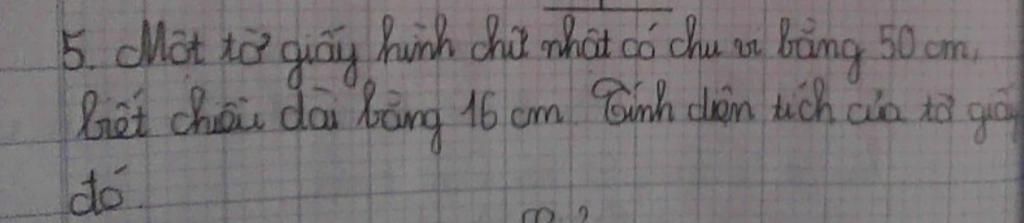 5. Một tờ giấy hình chữ nhật có chu vi bằng 50 cm,
biết chiều dài bằng 16 cm Tính diện tích của tờ giấy
đó.